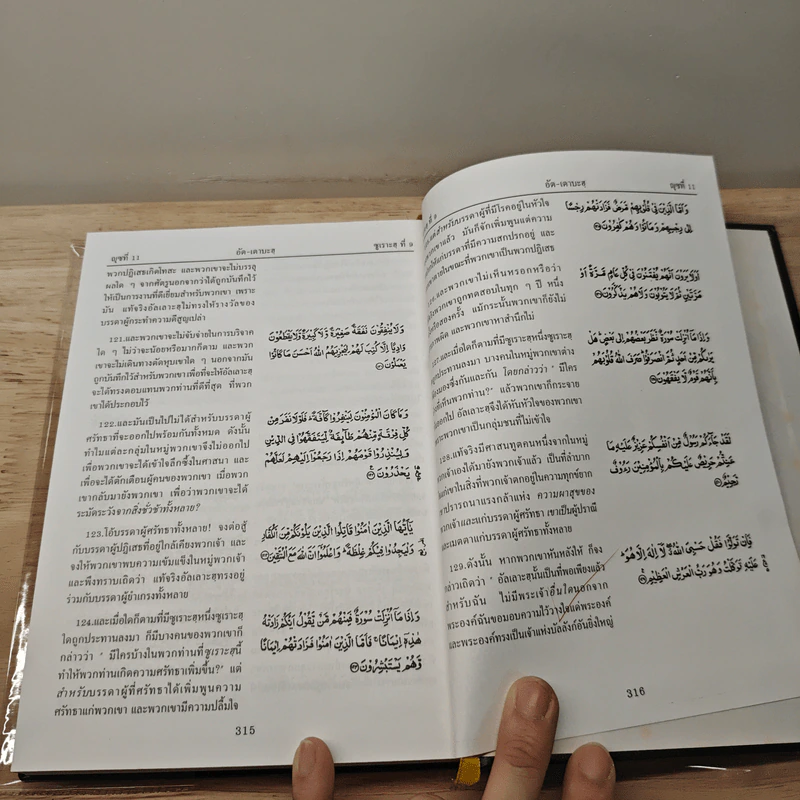 ญุซที่ 11 อัต-เตาบะฮฺ ซูเราะฮฺ ที่ 9
พวกปฏิเสธเกิดโทสะ และพวกเขาจะไม่บรรลุ
ผลใด ๆ จากศัตรูนอกจากว่าได้ถูกบันทึกไว้
ให้เป็นการงานที่ดีเยี่ยมสำหรับพวกเขา เพราะ
มัน แท้จริงอัลเลาะฮฺไม่ทรงให้รางวัลของ
บรรดาผู้กระทำความดีสูญเปล่า
121.และพวกเขาจะไม่จับจ่ายในการบริจาค
ใด ๆ ไม่ว่าจะน้อยหรือมากก็ตาม และพวก
เขาจะไม่เดินทางตัดหุบเขาใด ๆ นอกจากมัน
ถูกบันทึกไว้สำหรับพวกเขาเพื่อที่จะให้อัลเลาะฮฺ
จะได้ทรงตอบแทนพวกท่านที่ดีที่สุด ที่พวก
เขาได้ประกอบไว้
122.และมันเป็นไปไม่ได้สำหรับบรรดาผู้
ศรัทธาที่จะออกไปพร้อมกันทั้งหมด ดังนั้น
ทำไมแต่ละกลุ่มในหมู่พวกเขาจึงไม่ออกไป
เพื่อพวกเขาจะได้เข้าใจลึกซึ้งในศาสนา และ
เพื่อจะได้ตักเตือนผู้คนของพวกเขา เมื่อพวก
เขากลับมายังพวกเขา เพื่อว่าพวกเขาจะได้
ระมัดระวังจากสิ่งชั่วช้าทั้งหลาย?
123.โอ้บรรดาผู้ศรัทธาทั้งหลาย! จงต่อสู้
กับบรรดาผู้ปฏิเสธที่อยู่ใกล้เคียงพวกเจ้า และ
จงให้พวกเขาพบความเข้มแข็งในหมู่พวกเจ้า
และพึงทราบเถิดว่า แท้จริงอัลเลาะฮฺทรงอยู่
ร่วมกับบรรดาผู้ยำเกรงทั้งหลาย
124.และเมื่อใดก็ตามที่มีซูเราะฮฺหนึ่งซูเราะฮฺ
ใดถูกประทานลงมา ก็มีบางคนของพวกเขาก็
กล่าวว่า " มีใครบ้างในพวกท่านที่ซูเราะฮฺนี้
ทำให้พวกท่านเกิดความศรัทธาเพิ่มขึ้น?" แต่
สำหรับบรรดาผู้ที่ศรัทธาได้เพิ่มพูนความ
ศรัทธาแก่พวกเขา และพวกเขามีความปลื้มใจ
وَلَا يُنْفِقُونَ نَفَقَةً صَغِيرَةً وَلَا كَبِيرَةً وَلَا يَقْطَعُونَ
وَادِيًا إِلَّا كُتِبَ لَهُمْ لِيَجْزِيَهُمُ اللَّهُ أَحْسَنَ مَا كَانُوا
يَعْمَلُونَ
وَمَا كَانَ الْمُؤْمِنُونَ لِيَنْفِرُوا كَافَّةً فَلَوْلَا نَفَرَ مِنْ
كُلِّ فِرْقَةٍ مِنْهُمْ طَائِفَةٌ لِيَتَفَقَّهُوا فِي الدِّينِ
وَلِيُنْذِرُوا قَوْمَهُمْ إِذَا رَجَعُوا إِلَيْهِمْ لَعَلَّهُمْ
يَحْذَرُونَ
يَا أَيُّهَا الَّذِينَ آمَنُوا قَاتِلُوا الَّذِينَ يَلُونَكُمْ مِنَ الْكُفَّارِ
وَلْيَجِدُوا فِيكُمْ غِلْظَةً وَاعْلَمُوا أَنَّ اللَّهَ مَعَ الْمُتَّقِينَ
وَإِذَا مَا أُنْزِلَتْ سُورَةٌ فَمِنْهُمْ مَنْ يَقُولُ أَيُّكُمْ زَادَتْهُ
هَٰذِهِ إِيمَانًا فَأَمَّا الَّذِينَ آمَنُوا فَزَادَتْهُمْ إِيمَانًا
وَهُمْ يَسْتَبْشِرُونَ
315
ที่ 9 อัต-เตาบะฮฺ ญุซที่ 11
สำหรับบรรดาผู้ที่มีโรคอยู่ในหัวใจ
เขาแล้ว มันก็จักเพิ่มพูนแต่ความ
ให้แก่บรรดาที่มีความสกปรกอยู่ และ
ตายในขณะที่พวกเขาเป็นพวกปฏิเสธ
พวกเขาไม่เห็นหรอกหรือว่า
พวกเขาถูกทดสอบในทุก ๆ ปี หนึ่ง
หรือสองครั้ง แม้กระนั้นพวกเขาก็ยังไม่
ผิด และพวกเขาหาสำนึกไม่
และเมื่อใดก็ตามที่มีซูเราะฮฺหนึ่งซูเราะฮฺ
ถูกประทานลงมา บางคนในหมู่พวกเขาต่าง
มองซึ่งกันและกัน โดยกล่าวว่า " มีใคร
เห็นพวกท่าน?" แล้วพวกเขาก็กระจาย
ออกไป อัลเลาะฮฺจึงได้หันหัวใจของพวกเขา
พวกเขาเป็นกลุ่มชนที่ไม่เข้าใจ
128.แท้จริงมีศาสนทูตคนหนึ่งจากในหมู่
พวกเจ้าเองได้มายังพวกเจ้าแล้ว เป็นที่ลำบาก
แก่เขาในสิ่งที่พวกเจ้าตกอยู่ในความทุกข์ยาก
ปรารถนาแรงกล้าแห่ง ความผาสุขของ
พวกเจ้าและแก่บรรดาผู้ศรัทธา เขาเป็นผู้ปรานี
และเมตตาแก่บรรดาผู้ศรัทธาทั้งหลาย
129.ดังนั้น หากพวกเขาหันหลังให้ ก็จง
กล่าวเถิดว่า " อัลเลาะฮฺนั้นเป็นที่พอเพียงแล้ว
สำหรับฉัน ไม่มีพระเจ้าอื่นใดนอกจาก
พระองค์ฉันขอมอบความไว้วางใจต่อพระองค์
และพระองค์ทรงเป็นเจ้าแห่งบัลลังก์อันยิ่งใหญ่
وَأَمَّا الَّذِينَ فِي قُلُوبِهِمْ مَرَضٌ فَزَادَتْهُمْ رِجْسًا
إِلَى رِجْسِهِمْ وَمَاتُوا وَهُمْ كَافِرُونَ
أَوَلَا يَرَوْنَ أَنَّهُمْ يُفْتَنُونَ فِي كُلِّ عَامٍ مَرَّةً أَوْ
مَرَّتَيْنِ ثُمَّ لَا يَتُوبُونَ وَلَا هُمْ يَذَّكَّرُونَ
وَإِذَا مَا أُنْزِلَتْ سُورَةٌ نَظَرَ بَعْضُهُمْ إِلَى بَعْضٍ هَلْ
يَرَاكُمْ مِنْ أَحَدٍ ثُمَّ انْصَرَفُوا صَرَفَ اللَّهُ قُلُوبَهُمْ
بِأَنَّهُمْ قَوْمٌ لَا يَفْقَهُونَ
لَقَدْ جَاءَكُمْ رَسُولٌ مِنْ أَنْفُسِكُمْ عَزِيزٌ عَلَيْهِ مَا
عَنِتُّمْ حَرِيصٌ عَلَيْكُمْ بِالْمُؤْمِنِينَ رَءُوفٌ
رَحِيمٌ
فَإِنْ تَوَلَّوْا فَقُلْ حَسْبِيَ اللَّهُ لَا إِلَٰهَ إِلَّا هُوَ
عَلَيْهِ تَوَكَّلْتُ وَهُوَ رَبُّ الْعَرْشِ الْعَظِيمِ
316